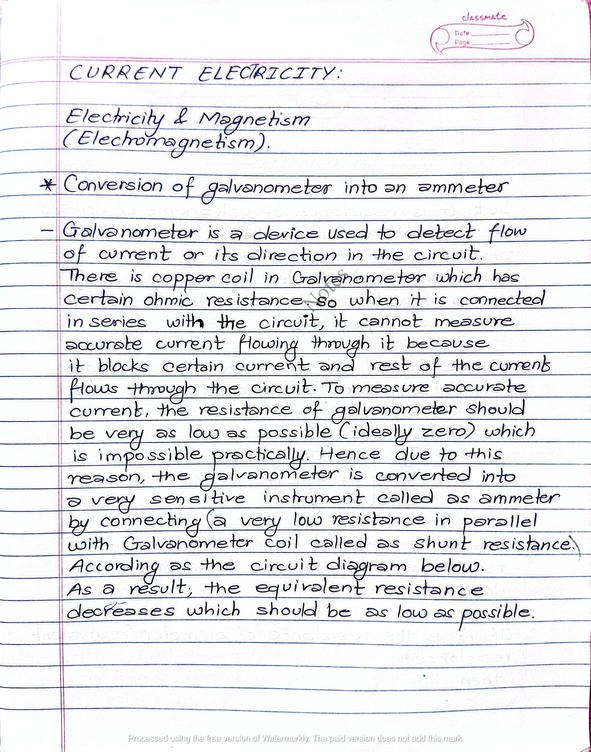 classmate
Date
Page
CURRENT ELECTRICITY:
Electricity & Magnetism
(Electromagnetism).
* Conversion of galvanometer into an ammeter
- Galvanometer is a device used to detect flow
of current or its direction in the circuit.
There is copper coil in Galvanometer which has
certain ohmic resistance, so when it is connected
in series with the circuit, it cannot measure
accurate current flowing through it because
it blocks certain current and rest of the current
flows through the circuit. To measure accurate
current, the resistance of galvanometer should
be very as low as possible (ideally zero) which
is impossible practically. Hence due to this
reason, the galvanometer is converted into
a very sensitive instrument called as ammeter
by connecting (a very low resistance in parallel
with Galvanometer coil called as shunt resistance.)
According as the circuit diagram below.
As a result, the equivalent resistance
decreases which should be as low as possible.
Notes
Processed using the free version of Watermarkly. The paid version does not add this mark.